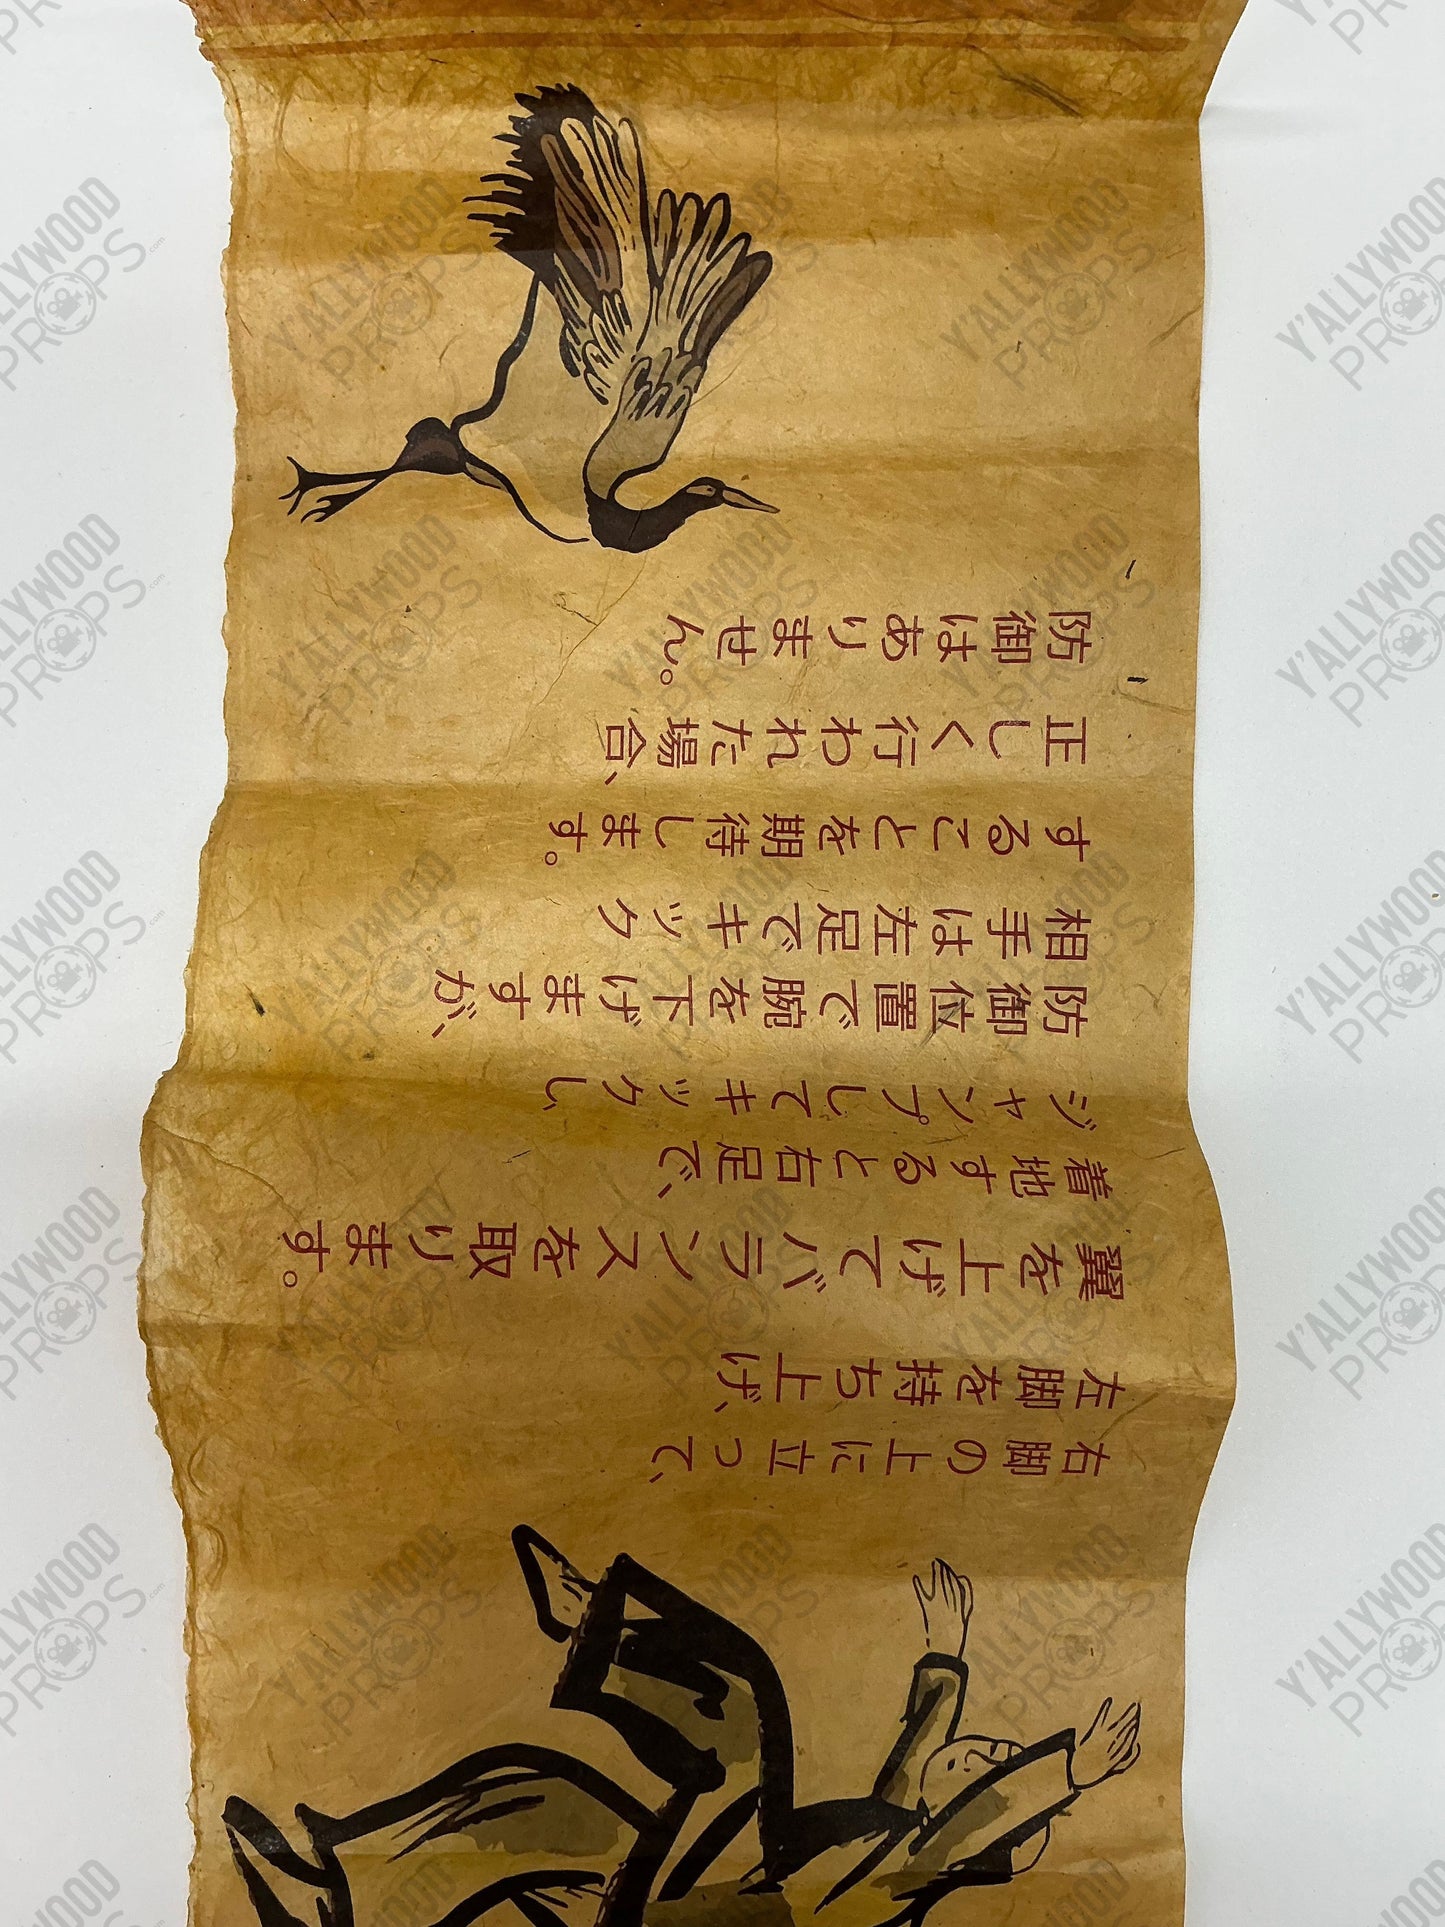 右脚の上に立って、
左脚を持ち上げ、
翼を上げてバランスを取ります。
着地すると右足で、
ジャンプしてキックし、
防御位置で腕を下げますが、
相手は左足でキック
することを期待します。
正しく行われた場合、
防御はありません。
Y'ALLYWOOD
PROPS.com